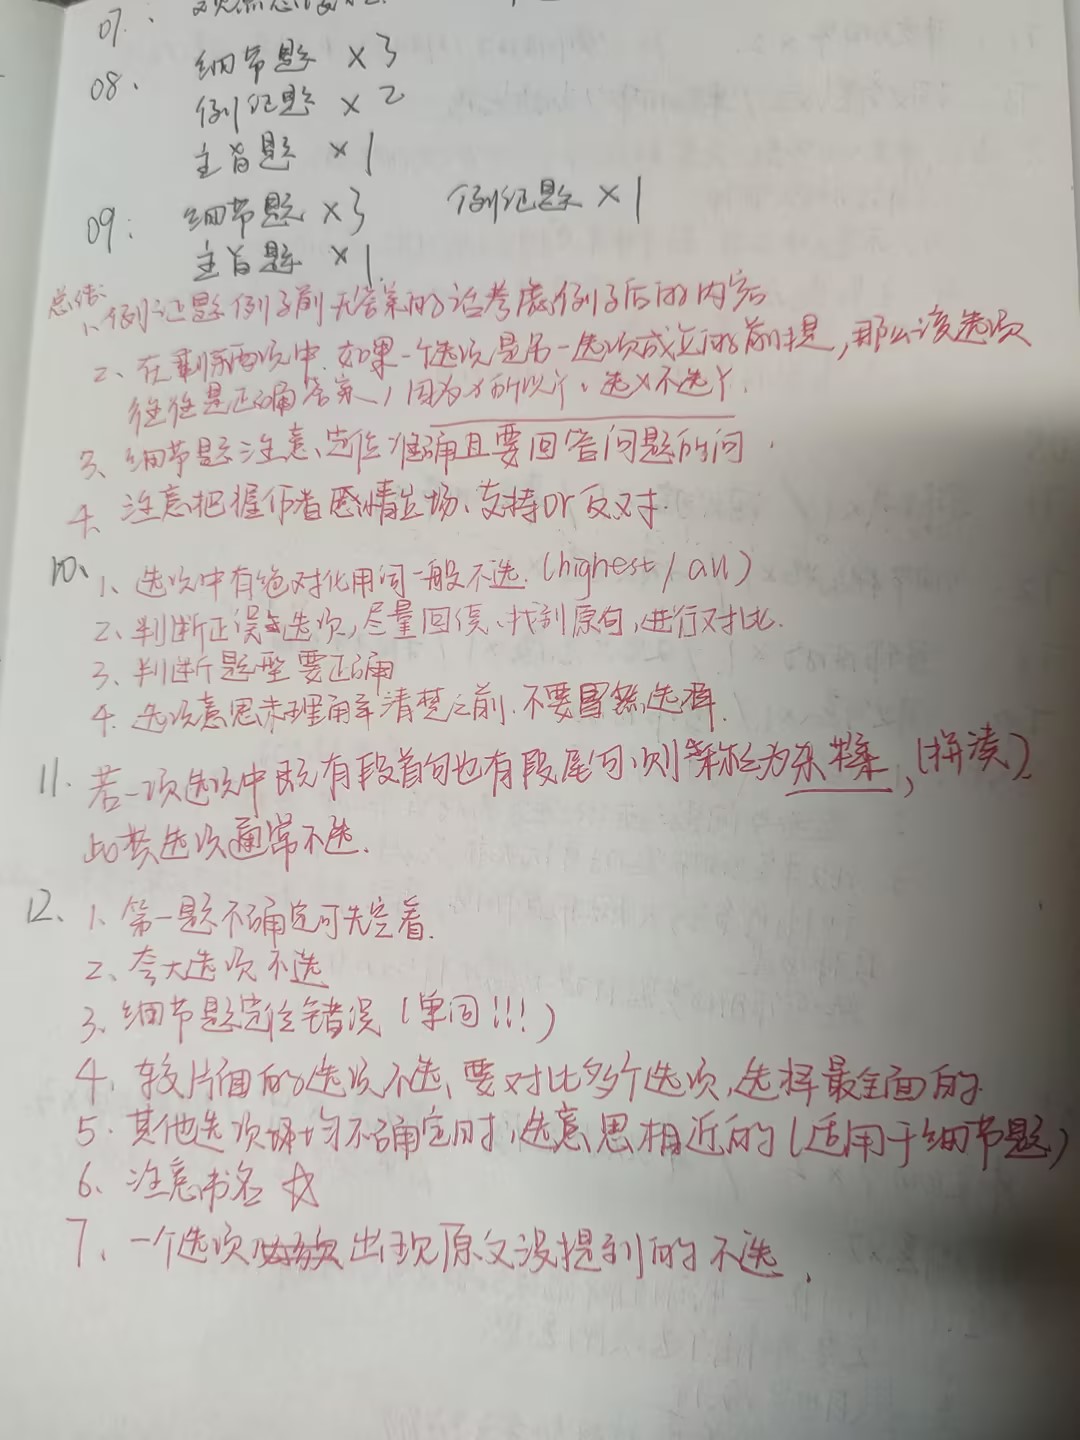 07. 观
08. 细节题 ×3
例证题 ×2
主旨题 ×1
09: 细节题 ×3 例证题 ×1
主旨题 ×1
总结:
1、例证题例子前无答案的话考虑例子后的内容
2、在剩余两项中,如果一个选项是另一选项成立的前提,那么该选项
往往是正确答案,因为X所以Y,选X不选Y.
3、细节题注意、定位准确且要回答问题所问.
4、注意把握作者感情立场、支持or反对.
10、1、选项中有绝对化用词一般不选.(highest/all)
2、判断正误选项,尽量回读、找到原句,进行对比.
3、判断题型要正确
4、选项意思未理解清楚之前.不要冒然选择.
11. 若一项选项中既有段首句也有段尾句,则称为杂糅,(拼凑)
此类选项通常不选.
12、1、第一题不确定可先空着.
2、夸大选项不选
3、细节题定位错误(单词!!!)
4、较片面的选项不选、要对比多个选项,选择最全面的.
5.其他选项均不确定时,选意思相近的(适用于细节题)
6、注意书名☆
7、一个选项出现原文没提到的不选.